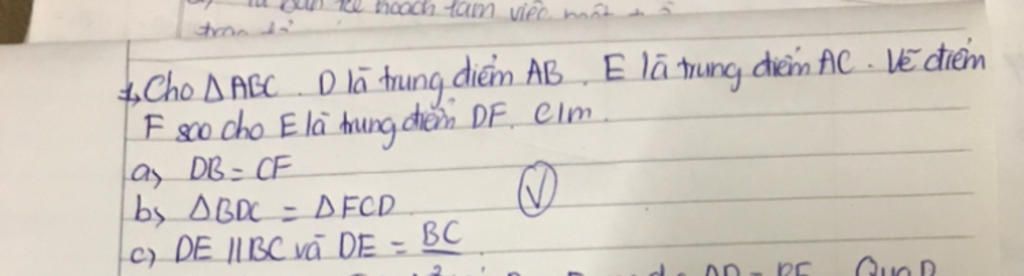 bản kế hoạch làm việc một
1, Cho ΔABC. D là trung điểm AB. E là trung điểm AC. Vẽ điểm
F sao cho E là trung điểm DF. C/m.
a) DB = CF
b) ΔBDC = ΔFCD
V
c) DE // BC và DE = BC
Qua D